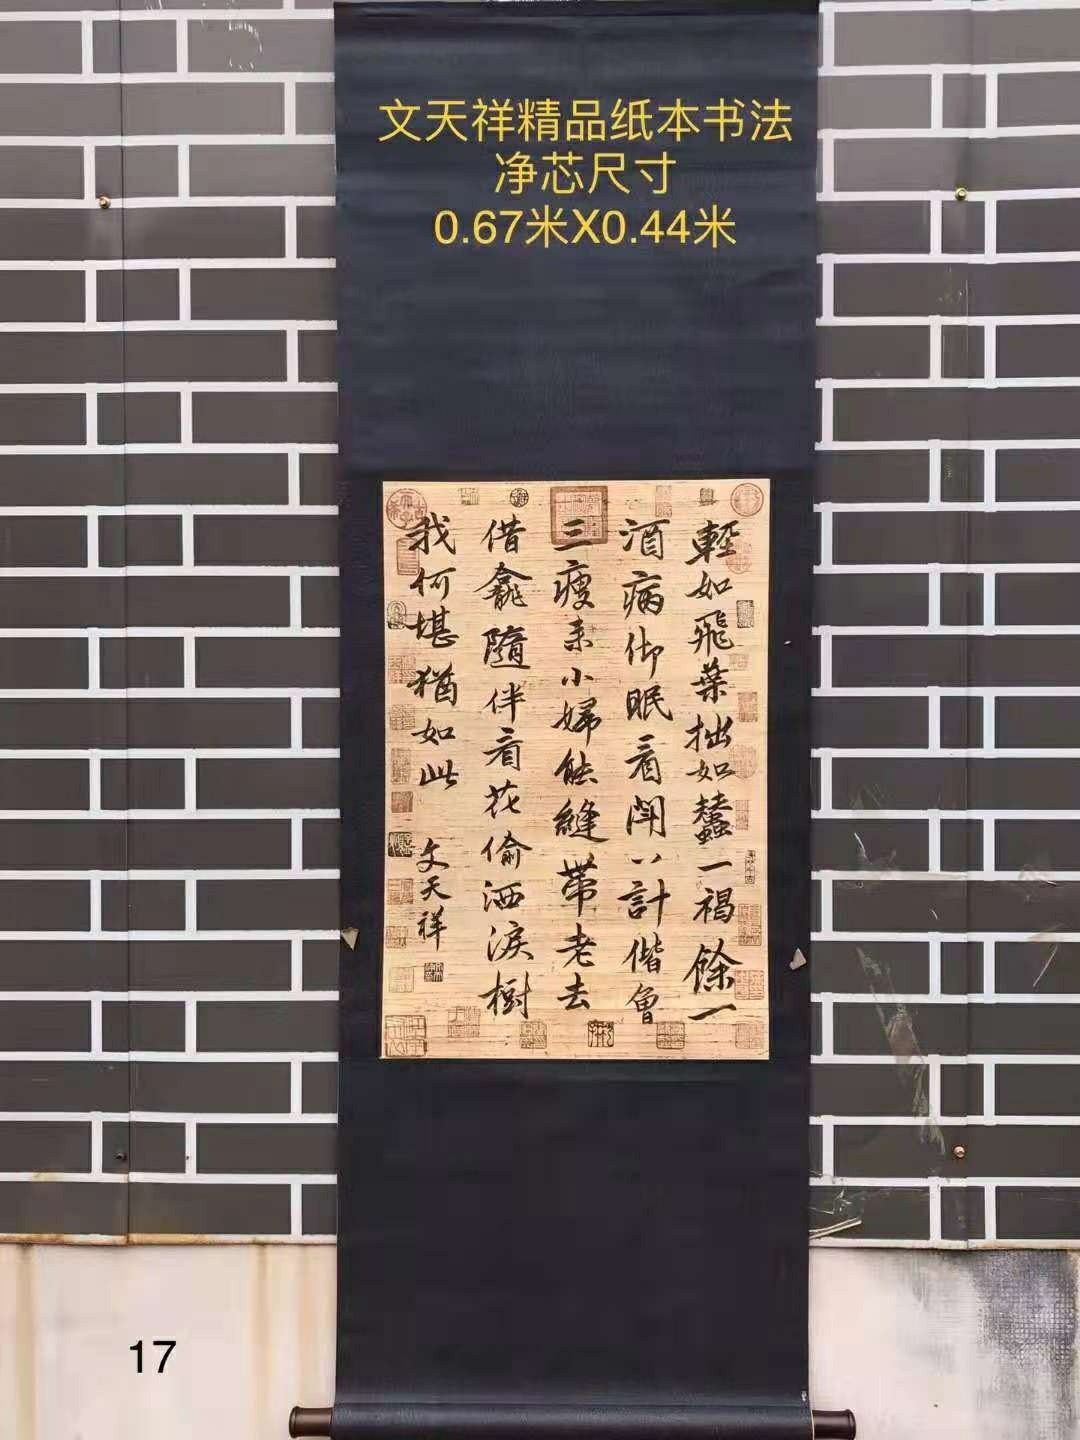 文天祥精品纸本书法
净芯尺寸
0.67米X0.44米
輕如飛葉拙如蠢一褐餘一
酒病仰眠看閒八計偕會
三瘦來小婦能縫帶老去
借龕隨伴看花偷洒淚樹
我何堪猶如此
文天祥
17